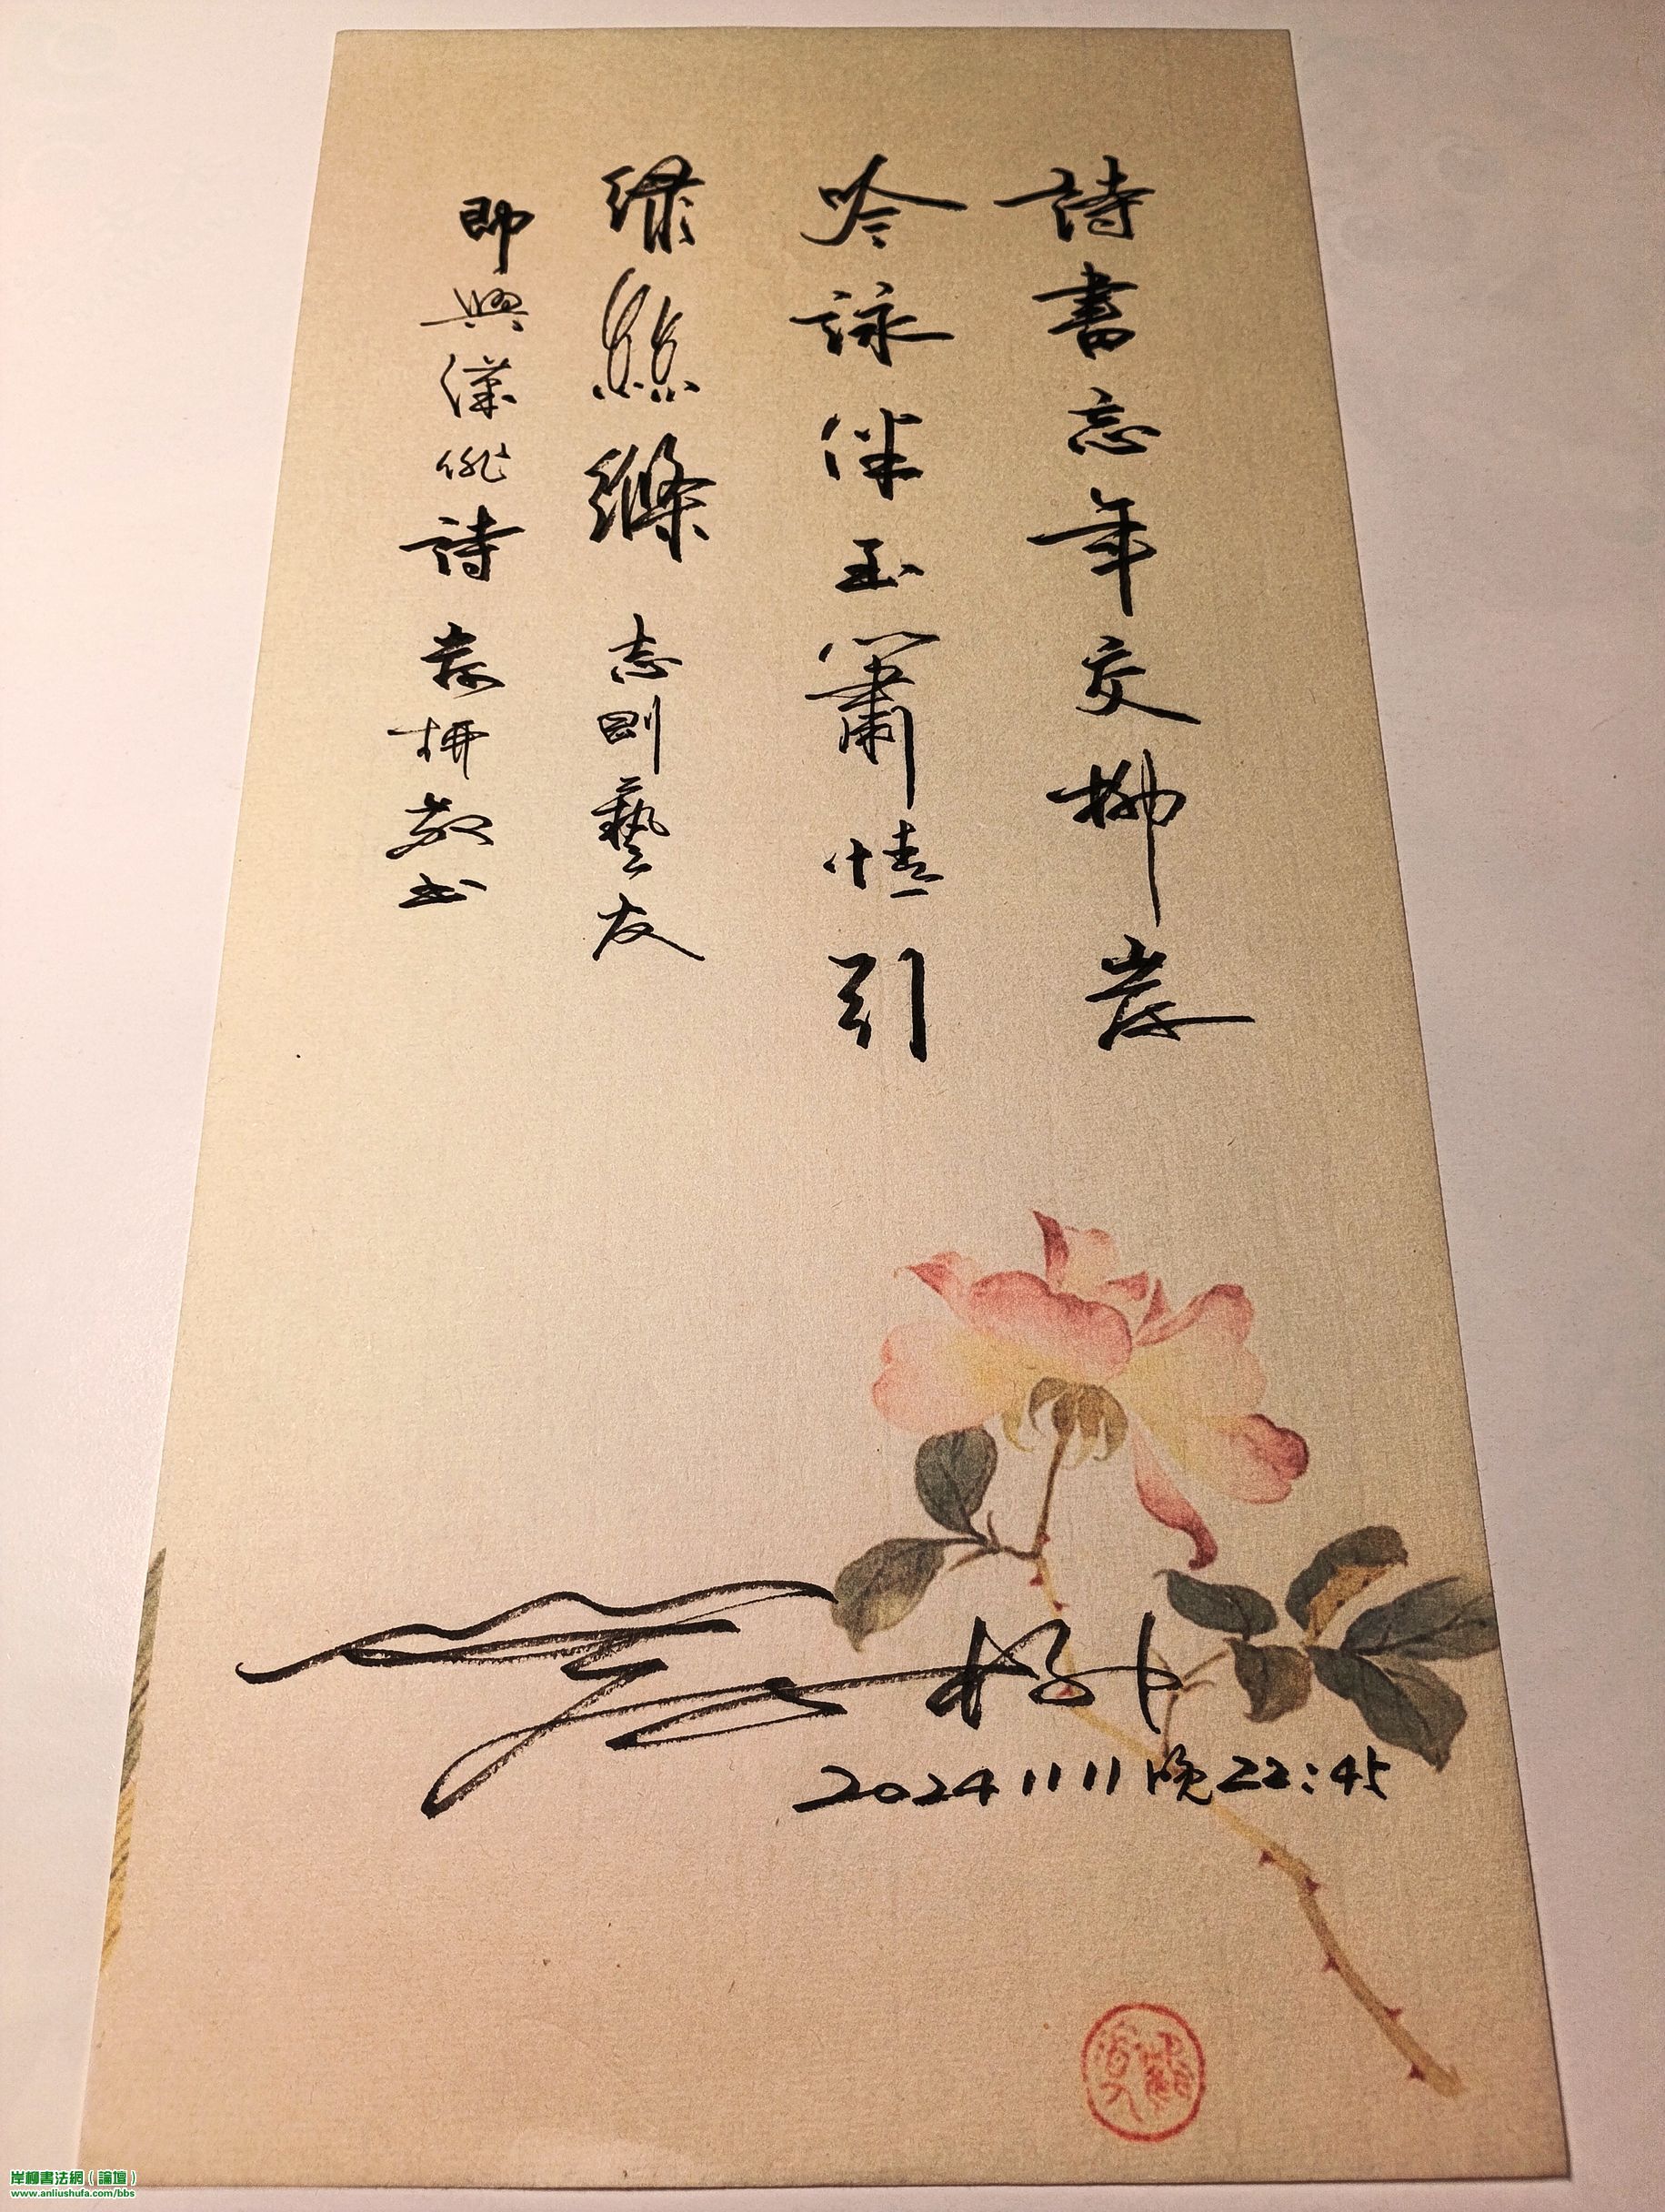 詩書忘年交柳岸
吟詠伴玉簫情引
綠絲絛 志剛藝友
即興漢俳詩 岸柳敬书
2024 11 11 晚 22:45
岸柳書法網（論壇）
www.anliushufa.com/bbs